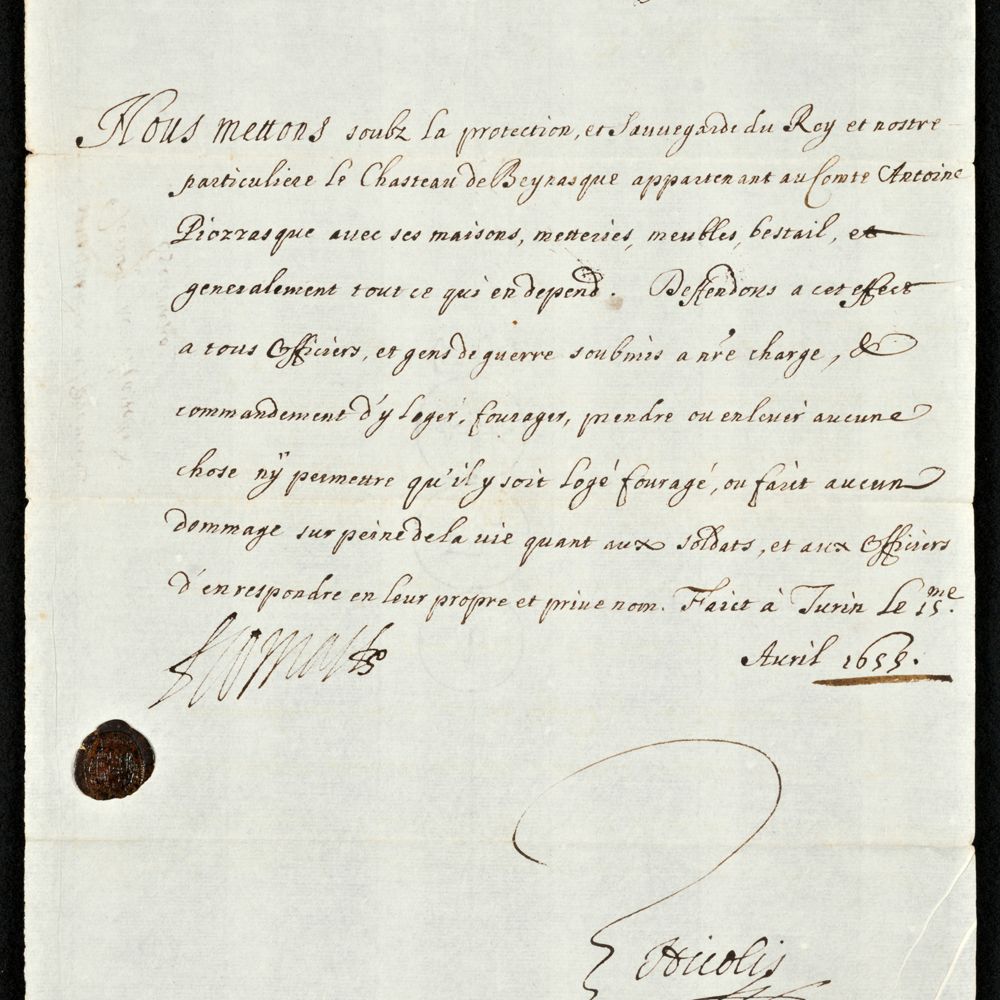 Nous mettons soubz la protection, et Sauvegarde du Roy et nostre
particuliere le Chasteau de Beynasque appartenant au Comte Antoine
Piozzasque avec ses maisons, metteries, meubles, bestail, et
generalement tout ce qui en depend. Deffendons a cet effect
a tous Officiers, et gens de guerre soubmis a nr̃e charge, &
commandement d'y loger, fourager, prendre ou enlever aucune
chose nÿ permettre qu'il y soit logé fouragé, ou faict aucun
dommage sur peine de la vie quant aux soldats, et aux Officiers
d'en respondre en leur propre et privé nom. Faict à Turin le 15.me
Avril 1655.
Nicolis